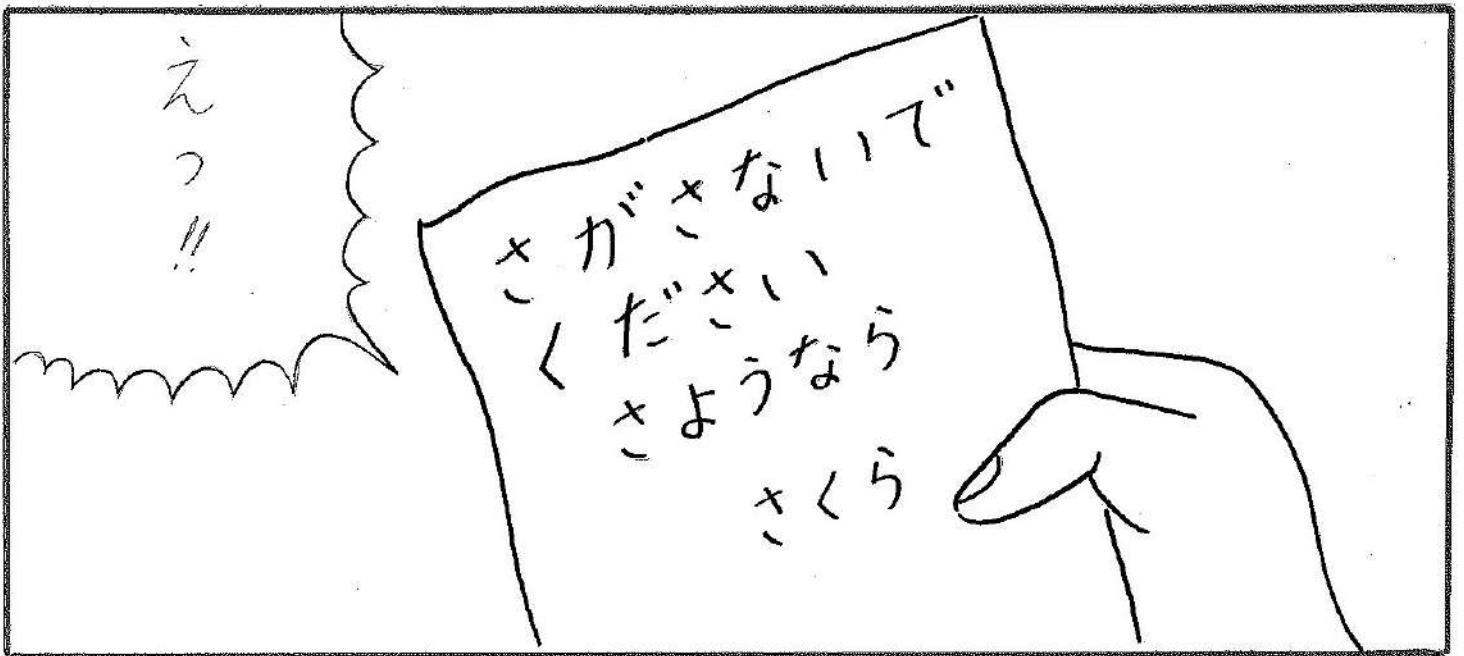 さがさないで
ください
さようなら
さくら
えっ!!